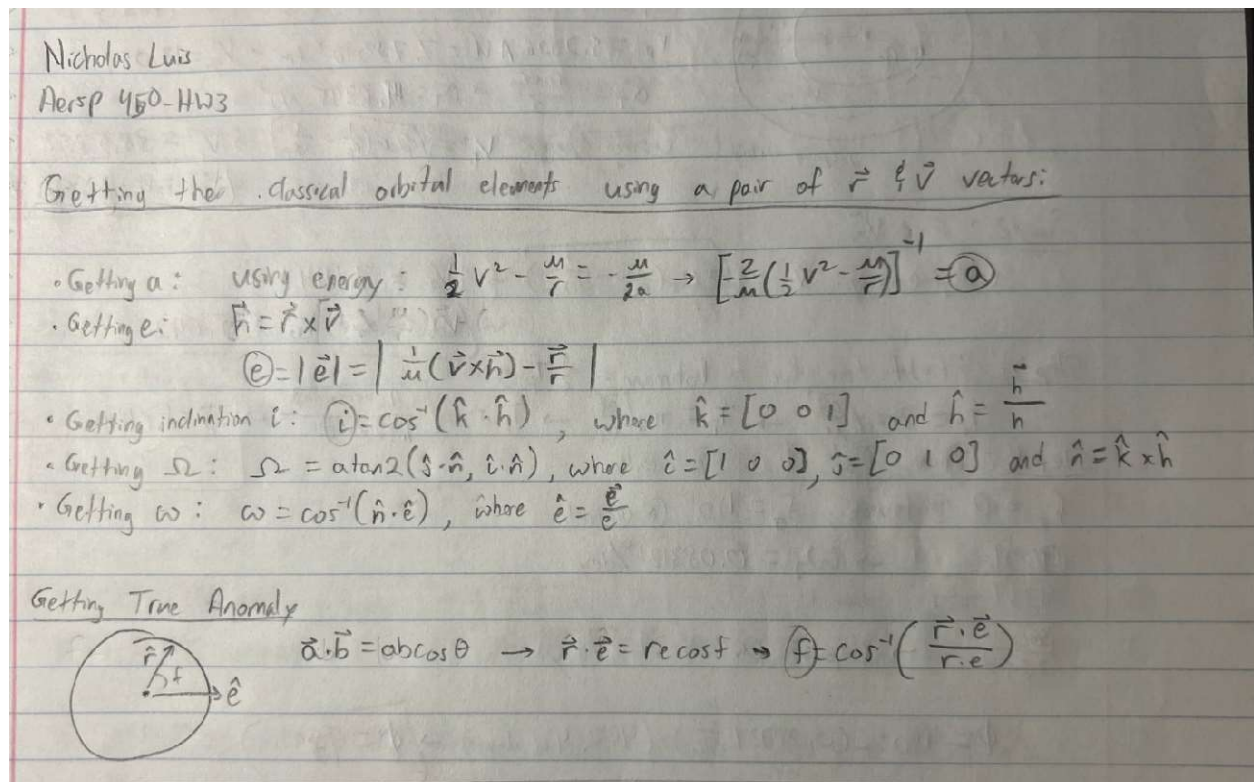 Nicholas Luis
Aersp 450-HW3
Getting the classical orbital elements using a pair of r⃗ & v⃗ vectors:
• Getting a: using energy: 1/2 v² - μ/r = -μ/2a → [-2/μ(1/2 v² - μ/r)]⁻¹ = a
• Getting e: h⃗ = r⃗ × v⃗
e = |e⃗| = | 1/μ (v⃗×h⃗) - r⃗/r |
• Getting inclination i: i = cos⁻¹(k̂ · ĥ), where k̂ = [0 0 1] and ĥ = h⃗/h
• Getting Ω: Ω = atan2(ĵ·n̂, î·n̂), where î = [1 0 0], ĵ = [0 1 0] and n̂ = k̂ × ĥ
• Getting ω: ω = cos⁻¹(n̂·ê), where ê = e⃗/e
Getting True Anomaly
a⃗·b⃗ = abcosθ → r⃗·e⃗ = recosf → f = cos⁻¹( r⃗·e⃗ / r·e )
r̂
f
ê